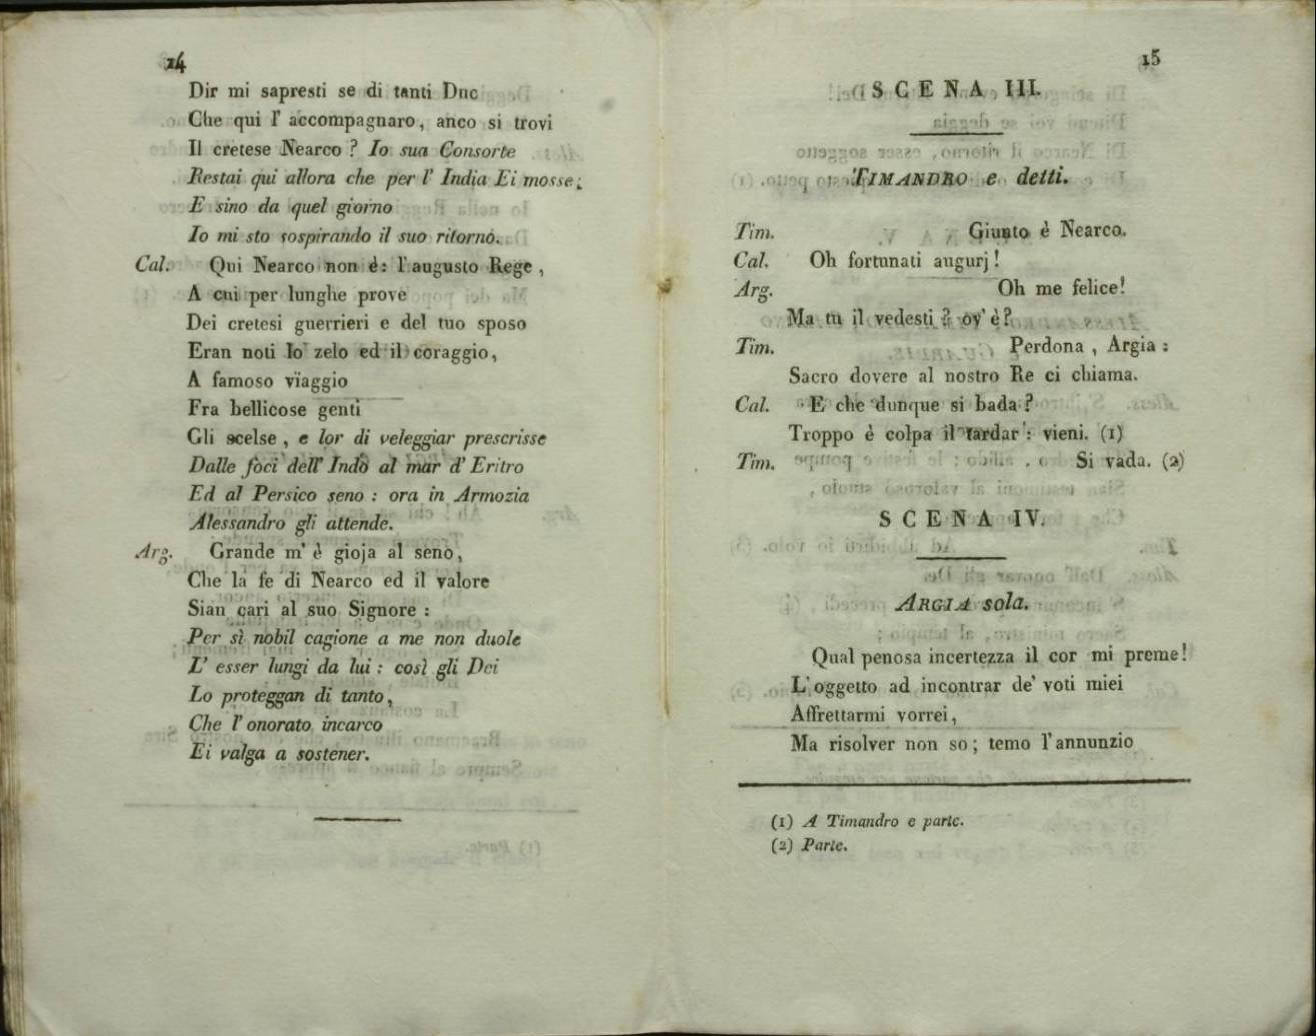 14
Dir mi sapresti se di tanti Duc
Che qui l' accompagnaro, anco si trovi
Il cretese Nearco? Io sua Consorte
Restai qui allora che per l' India Ei mosse;
E sino da quel giorno
Io mi sto sospirando il suo ritorno.
Cal. Qui Nearco non è: l'augusto Rege,
A cui per lunghe prove
Dei cretesi guerrieri e del tuo sposo
Eran noti lo zelo ed il coraggio,
A famoso viaggio
Fra bellicose genti
Gli scelse, e lor di veleggiar prescrisse
Dalle foci dell' Indo al mar d' Eritro
Ed al Persico seno: ora in Armozia
Alessandro gli attende.
Arg. Grande m' è gioja al seno,
Che la fe di Nearco ed il valore
Sian cari al suo Signore:
Per sì nobil cagione a me non duole
L' esser lungi da lui: così gli Dei
Lo proteggan di tanto,
Che l' onorato incarco
Ei valga a sostener.
15
SCENA III.
TIMANDRO e detti.
Tim. Giunto è Nearco.
Cal. Oh fortunati augurj!
Arg. Oh me felice!
Ma tu il vedesti? ov' è?
Tim. Perdona, Argia:
Sacro dovere al nostro Re ci chiama.
Cal. E che dunque si bada?
Troppo è colpa il tardar: vieni. (1)
Tim. Si vada. (2)
SCENA IV.
ARGIA sola.
Qual penosa incertezza il cor mi preme!
L'oggetto ad incontrar de' voti miei
Affrettarmi vorrei,
Ma risolver non so; temo l'annunzio
(1) A Timandro e parte.
(2) Parte.